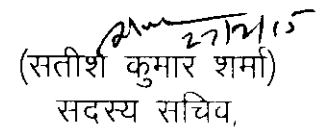 27/2/15
(सतीश कुमार शर्मा)
सदस्य सचिव,